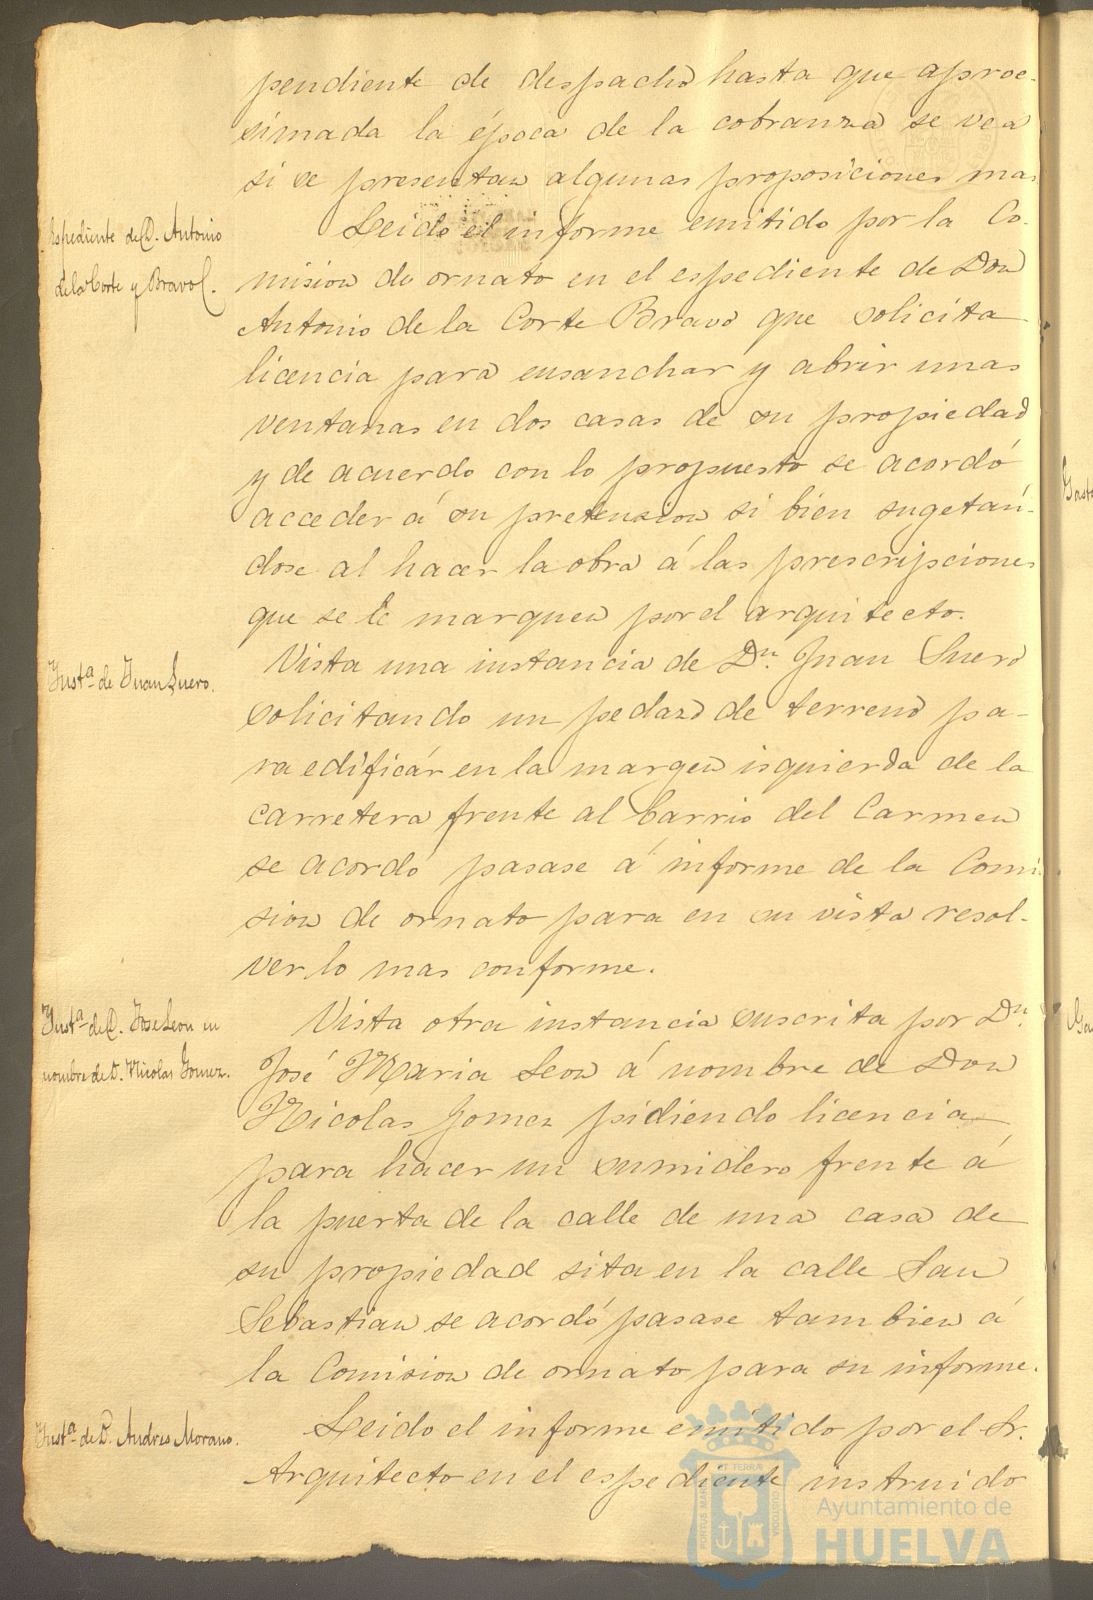 pendiente de despacho hasta que aproc-
simada la época de la cobranza se vea
si se presentan algunas proposiciones mas
Espediente de D. Antonio
de la Corte y Bravo.
Leido el informe emitido por la Co-
mision de ornato en el espediente de Don
Antonio de la Corte Bravo que solicita
licencia para ensanchar y abrir unas
ventanas en dos casas de su propiedad
y de acuerdo con lo propuesto se acordó
acceder á su pretension si bien sugetán-
dose al hacer la obra á las prescripciones
que se le marquen por el arquitecto.
Inst.ª de Juan Suero.
Vista una instancia de Dn. Juan Suero
solicitando un pedazo de terreno pa-
ra edificár en la margen isquierda de la
carretera frente al barrio del Carmen
se acordó pasase á informe de la Comi
sion de ornato para en su vista resol-
ver lo mas conforme.
Inst.ª de D. Jose Leon en
nombre de D. Nicolas Gomez.
Vista otra instancia suscrita por Dn.
José Maria Leon á nombre de Don
Nicolas Gomez pidiendo licencia
para hacer un sumidero frente á
la puerta de la calle de una casa de
su propiedad sita en la calle San
Sebastian se acordó pasase tambien á
la Comision de ornato para su informe.
Inst.ª de D. Andres Morano.
Leido el informe emitido por el Sr.
Arquitecto en el espediente instruido
PORTUS MARIS ET TERRÆ CUSTODIA
Ayuntamiento de
HUELVA